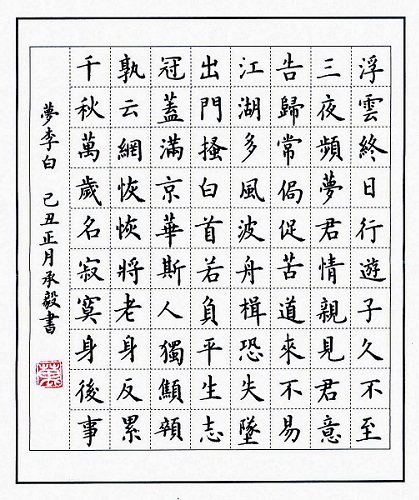 浮雲終日行遊子久不至
三夜頻夢君情親見君意
告歸常侷促苦道來不易
江湖多風波舟楫恐失墜
出門搔白首若負平生志
冠蓋滿京華斯人獨顦顇
孰云網恢恢將老身反累
千秋萬歲名寂寞身後事
夢李白 己丑正月承毅書